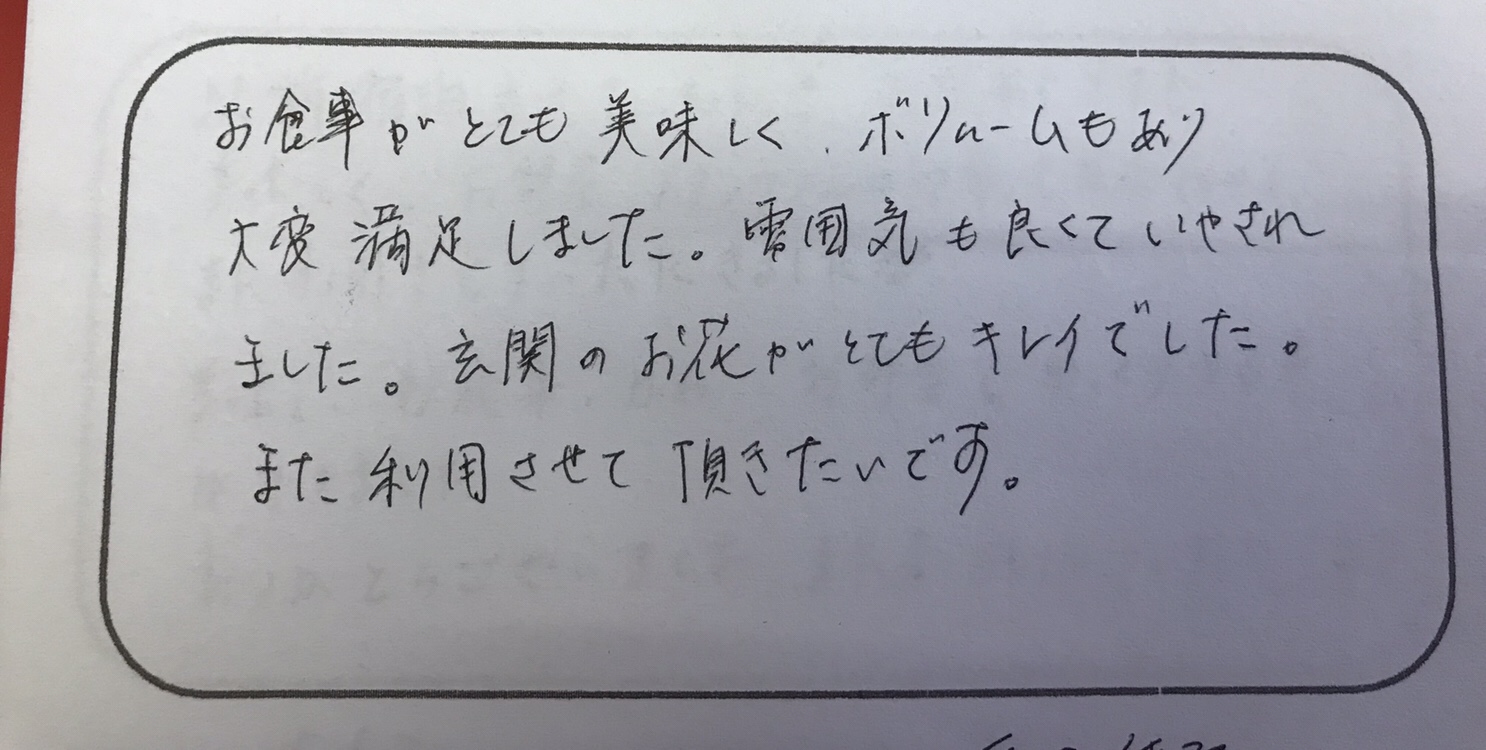 お食事がとても美味しく、ボリュームもあり
大変満足しました。雰囲気も良くていやされ
ました。玄関のお花がとてもキレイでした。
また利用させて頂きたいです。